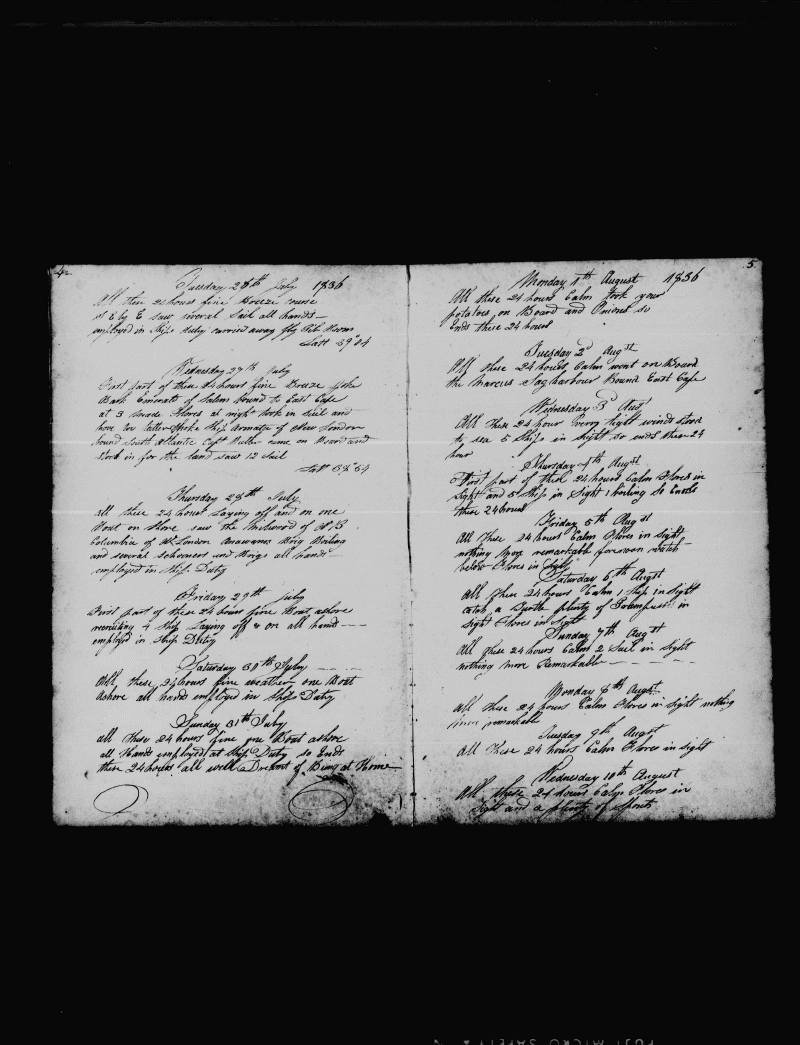 4
Tuesday 26th July 1836
All these 24 hours fine Breeze
at E by E saw several Sail all hands
employed in Ships Duty carried away fly Jib Boom
Latt 39°04
Wednesday 27th July
First part of these 24 hours fine Breeze spoke
Bark Emerald of Salem Bound to East Cape
at 3 made Flores at night took in sail and
hove too latter Spoke Ship Aromatic of New London
bound South Atlantic Capt came on Board and
stood in for the land saw 12 Sail
Latt
Thursday 28th July
all these 24 hours Laying off and on one
Boat on Shore saw the of N B
Columbia of N London Brig
and several Schooners and Brigs all hands
employed in Ship Duty
Friday 29th July
First part of these 24 hours fine Boat ashore
recruiting 4 Ship Laying off & on all hands
employed in Ship Duty
Saturday 30th July
All these 24 hours fine weather one Boat
Ashore all hands employed in Ship Duty
Sunday 31th July
all these 24 hours fine one Boat ashore
all Hands employed at Ship Duty so Ends
these 24 hours all well a Dreamt of Being at Home
5
Monday 1th August 1836
All these 24 hours Calm took your
potatoes on Board and Onions so
Ends these 24 hours
Tuesday 2d Augst
All these 24 hours Calm went on Board
the Marcus Sagharbour Bound East Cape
Wednesday 3d Aug
All these 24 hour Every light winds stood
to sea 5 Ships in sight so ends these 24
hour
Thursday 4th Augst
First part of these 24 hours Calm Flores in
Sight and 5 Ship in Sight boiling so Ends
these 24 hours
Friday 5th Augst
All these 24 hours Calm Flores in sight
nothing more remarkable forenoon watch
below Flores in Sight
Saturday 6th Augst
All these 24 hours Calm 1 ship in sight
catch a plenty of in
sight Flores in Sight
Sunday 7th Augst
All these 24 hours Calm 2 Sail in sight
nothing more Remarkable
Monday 8th Augst
all these 24 hours Calm Flores in sight nothing
more remarkable
Tuesday 9th Augst
All these 24 hours Calm Flores in sight
Wednesday 10th August
All these 24 hours Calm Flores in
Sight and a plenty of Spouts
FUJI MICRO SAFETY